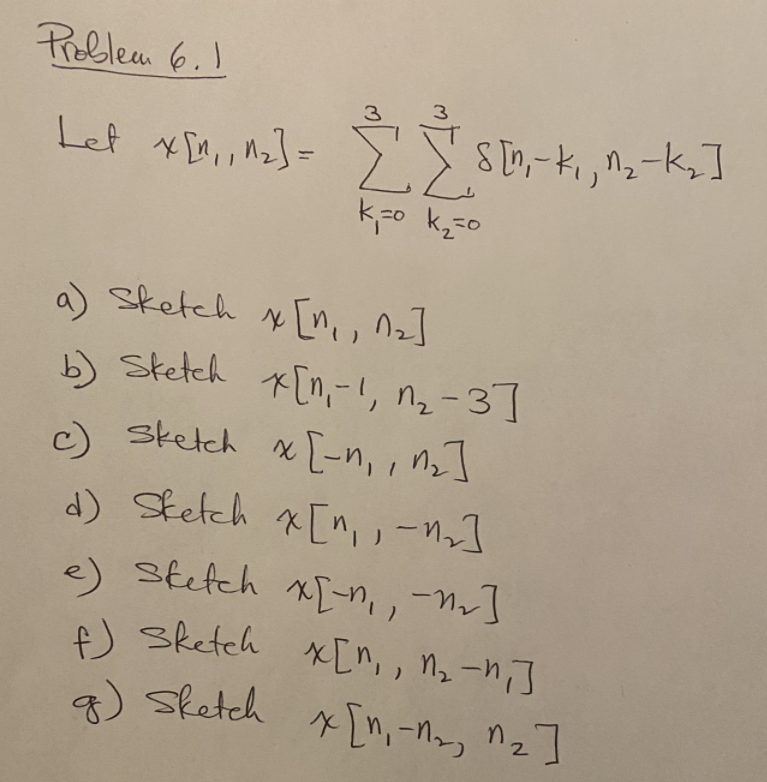 Problem 6.1
Let x[n₁, n₂] = ∑_{k₁=0}^{3} ∑_{k₂=0}^{3} δ[n₁-k₁, n₂-k₂]
a) Sketch x[n₁, n₂]
b) Sketch x[n₁-1, n₂-3]
c) Sketch x[-n₁, n₂]
d) Sketch x[n₁, -n₂]
e) Sketch x[-n₁, -n₂]
f) Sketch x[n₁, n₂-n₁]
g) Sketch x[n₁-n₂, n₂]